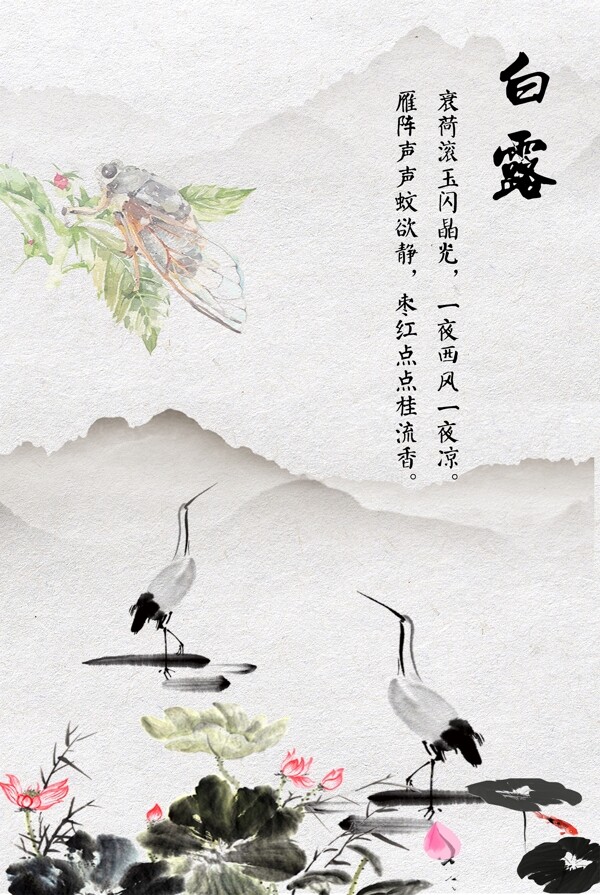 白露
衰荷滚玉闪晶光，一夜西风一夜凉。
雁阵声声蚊欲静，枣红点点桂流香。